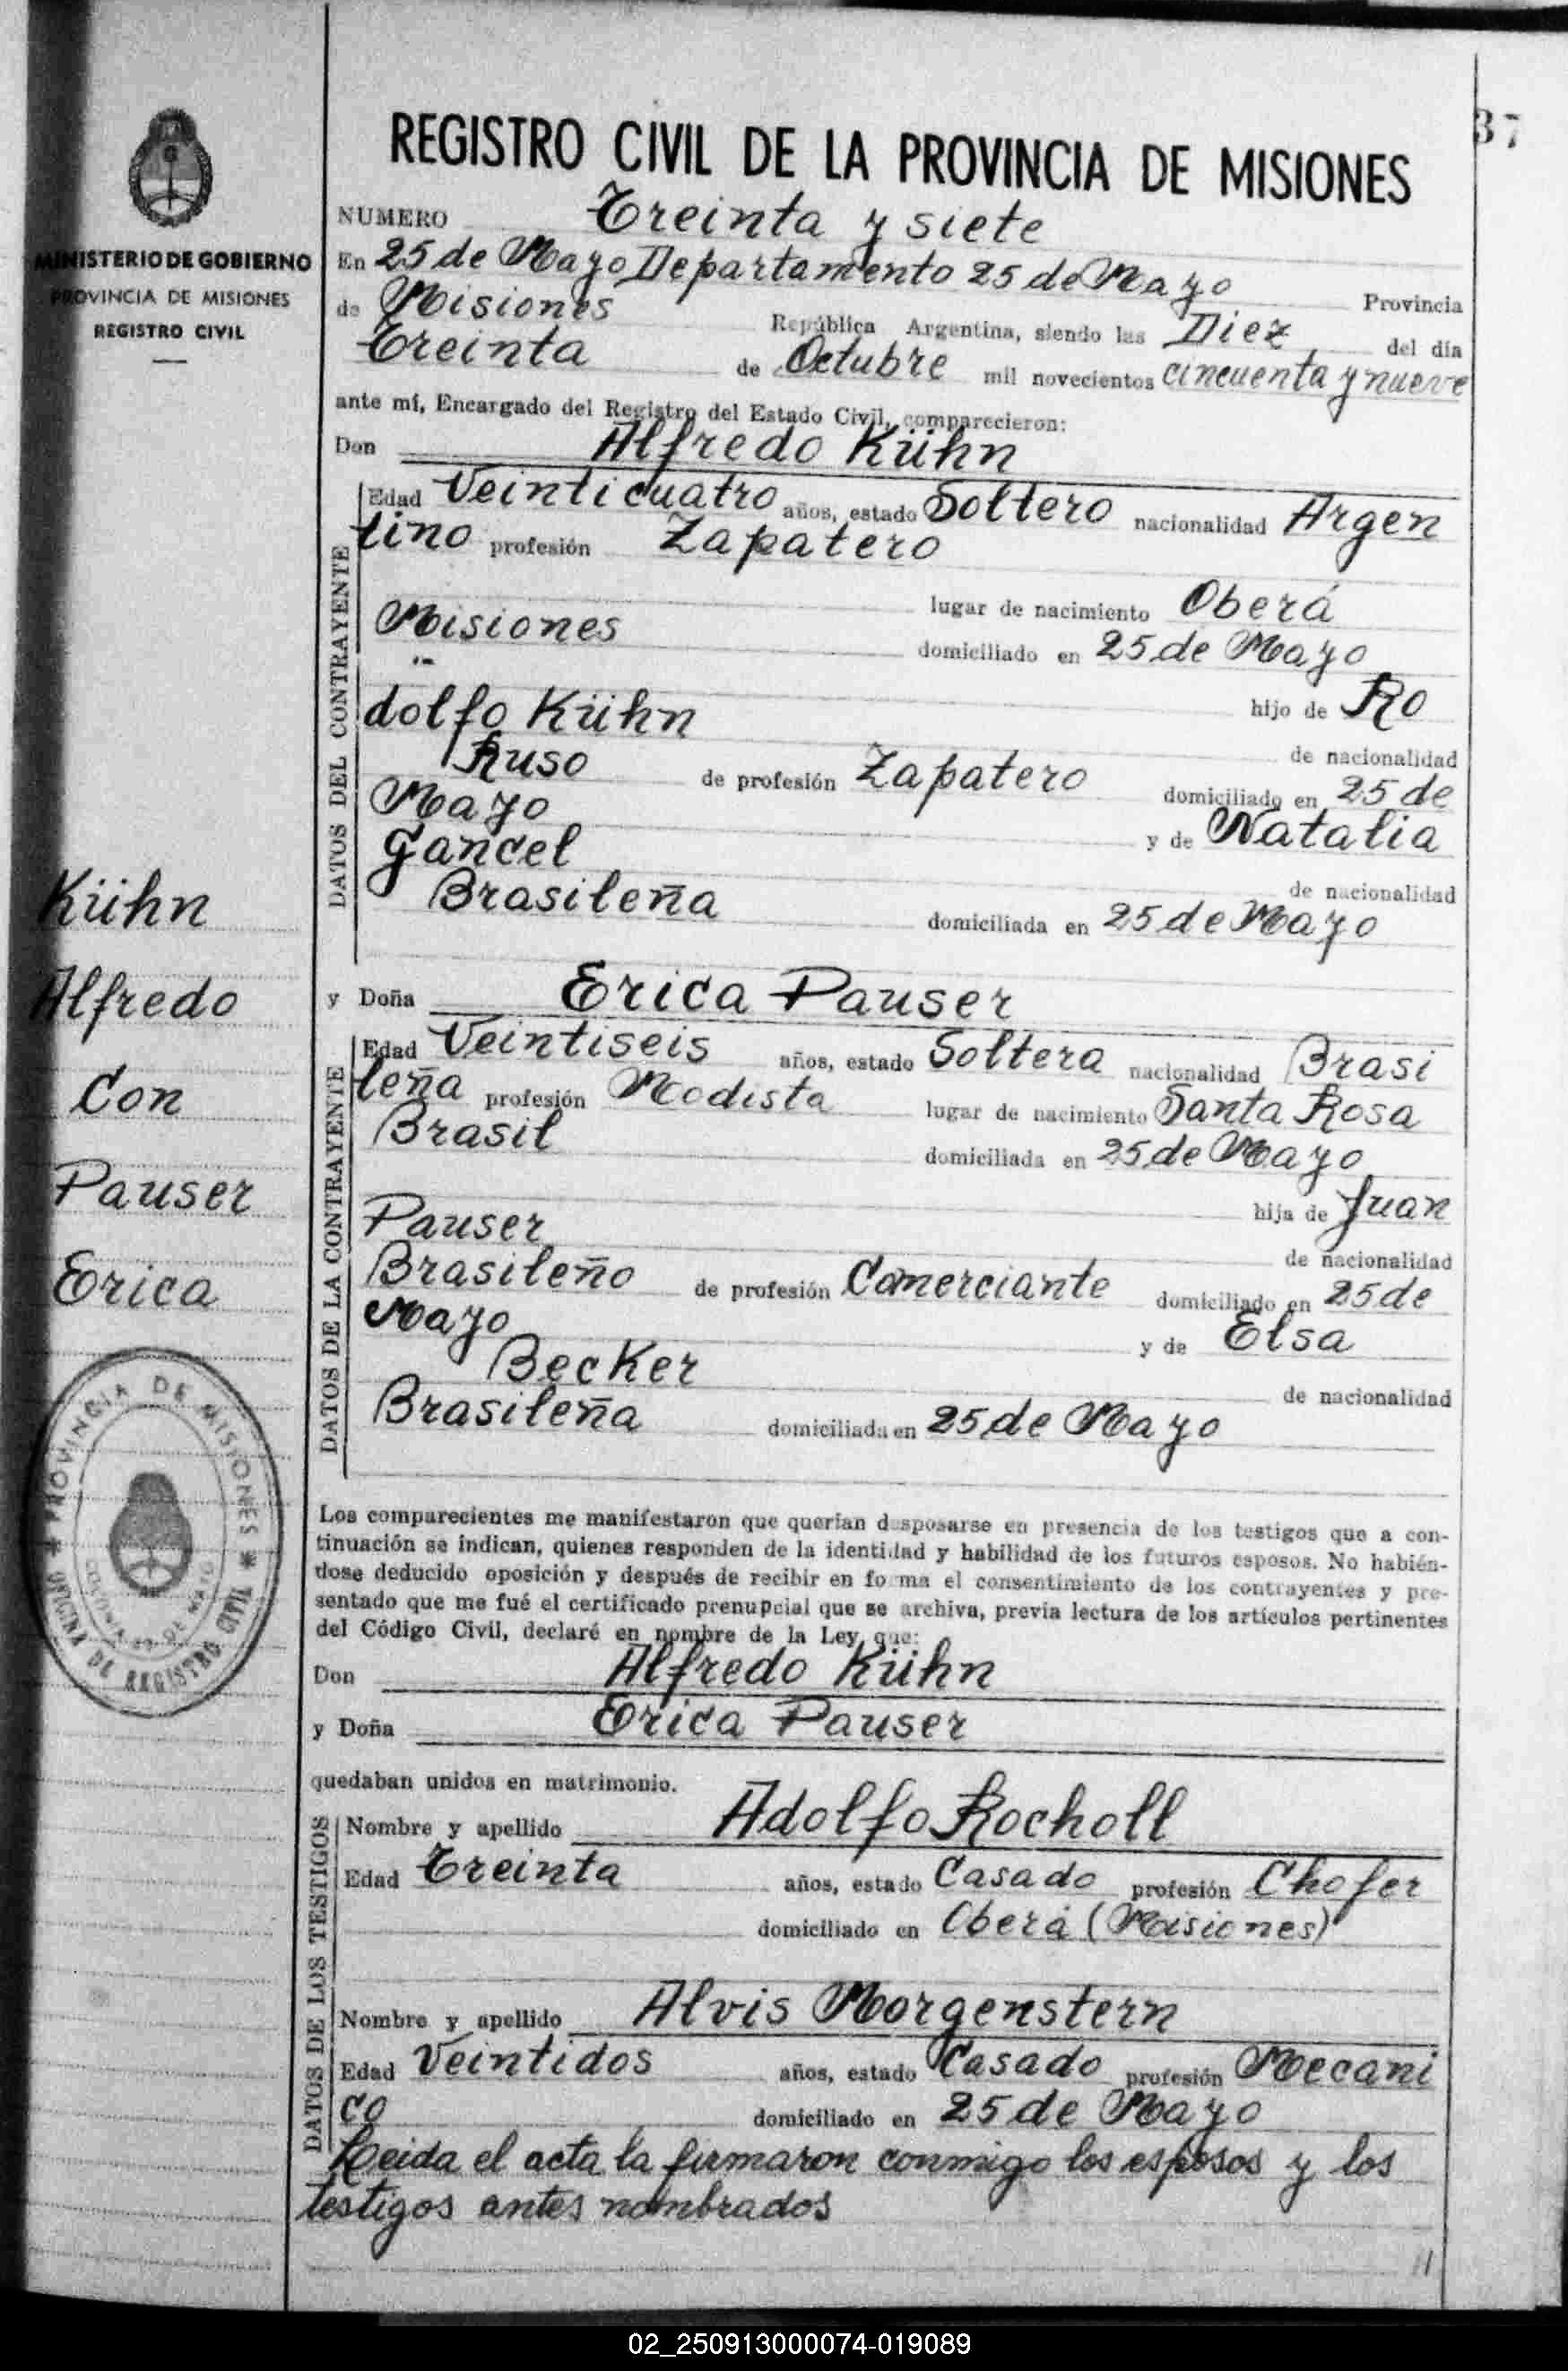 37
REGISTRO CIVIL DE LA PROVINCIA DE MISIONES
MINISTERIO DE GOBIERNO
PROVINCIA DE MISIONES
REGISTRO CIVIL
NUMERO Treinta y siete
En 25 de Mayo Departamento 25 de Mayo Provincia
de Misiones República Argentina, siendo las Diez del día
Treinta de Octubre mil novecientos cincuenta y nueve
ante mí, Encargado del Registro del Estado Civil, comparecieron:
Don Alfredo Kühn
DATOS DEL CONTRAYENTE
Edad Veinticuatro años, estado Soltero nacionalidad Argen
tino profesión Zapatero
lugar de nacimiento Oberá
Misiones domiciliado en 25 de Mayo
hijo de Ro
dolfo Kühn de nacionalidad
Ruso de profesión Zapatero domiciliado en 25 de
Mayo y de Natalia
Gancel de nacionalidad
Brasileña domiciliada en 25 de Mayo
Kühn
Alfredo
Con
Pauser
Erica
y Doña Erica Pauser
DATOS DE LA CONTRAYENTE
Edad Veintiseis años, estado Soltera nacionalidad Brasi
leña profesión Modista lugar de nacimiento Santa Rosa
Brasil domiciliada en 25 de Mayo
hija de Juan
Pauser de nacionalidad
Brasileño de profesión Comerciante domiciliado en 25 de
Mayo y de Elsa
Becker de nacionalidad
Brasileña domiciliada en 25 de Mayo
PROVINCIA DE MISIONES
OFICINA DE REGISTRO CIVIL
Los comparecientes me manifestaron que querían desposarse en presencia de los testigos que a con-
tinuación se indican, quienes responden de la identidad y habilidad de los futuros esposos. No habién-
dose deducido oposición y después de recibir en forma el consentimiento de los contrayentes y pre-
sentado que me fué el certificado prenupcial que se archiva, previa lectura de los artículos pertinentes
del Código Civil, declaré en nombre de la Ley, que:
Don Alfredo Kühn
y Doña Erica Pauser
quedaban unidos en matrimonio.
DATOS DE LOS TESTIGOS
Nombre y apellido Adolfo Rocholl
Edad Treinta años, estado Casado profesión Chofer
domiciliado en Oberá (Misiones)
Nombre y apellido Alvis Morgenstern
Edad Veintidos años, estado Casado profesión Mecani
co domiciliado en 25 de Mayo
Leida el acta la firmaron conmigo los esposos y los
testigos antes nombrados
02_250913000074-019089